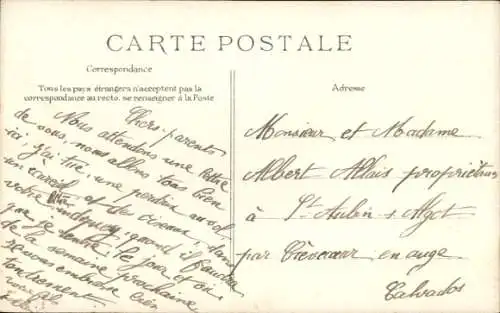 CARTE POSTALE
Correspondance
Tous les pays étrangers n'acceptent pas la
correspondance au recto. se renseigner à la Poste
Adresse
Chers parents
Nous attendons une lettre
de vous, nous allons tous bien
ici, j'ai tué, une perdrix au vol
un et des oiseaux, dans
votre quand il faudra
que je rentre, le jour et où,
de la semaine prochaine
recevez
tendrement
votre fils
Monsieur et Madame
Albert Allais propriétaire
à St Aubin s. Algot
par Crèvecoeur en auge
Calvados